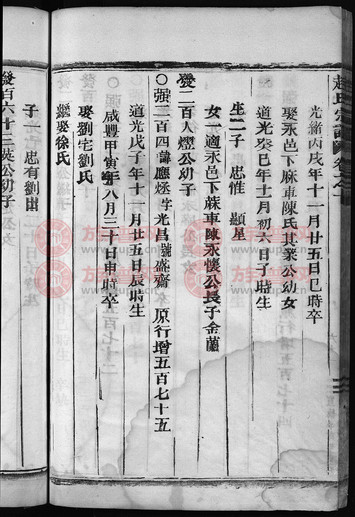 光緒丙戌年十一月廿五日巳時卒
娶永邑下麻車陳氏其業公幼女
道光癸巳年十月初六日子時生
生二子 忠惟 顯星
女一適永邑下蔴車陳永懷公長子金蘭
二百人熠公幼子
○強三百四 諱應烾字光昌號盛齋 原行增五百七十五
道光戊子年十一月廿五日辰時生
咸豐甲寅年八月三十日申時卒
娶劉宅劉氏
繼娶徐氏
子一 忠有劉出
發百六十二英公幼子